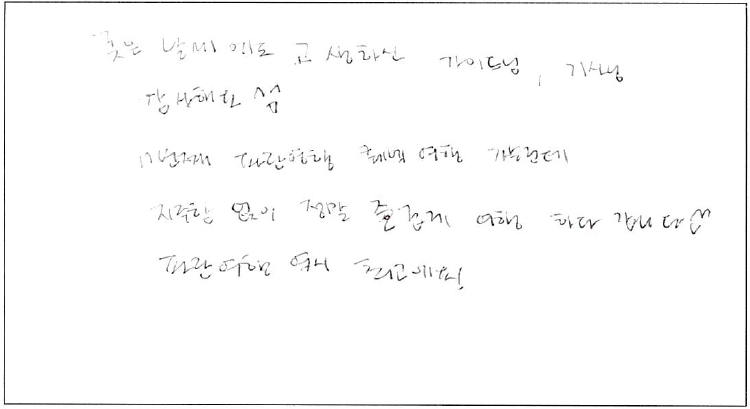 궂은 날씨에도 고생하신 가이드님, 기사님
감사해요
11번째 파란여행 통해 여행 가는데
지루함 없이 정말 즐겁게 여행 하다 갑니다
파란여행 역시 최고예요!